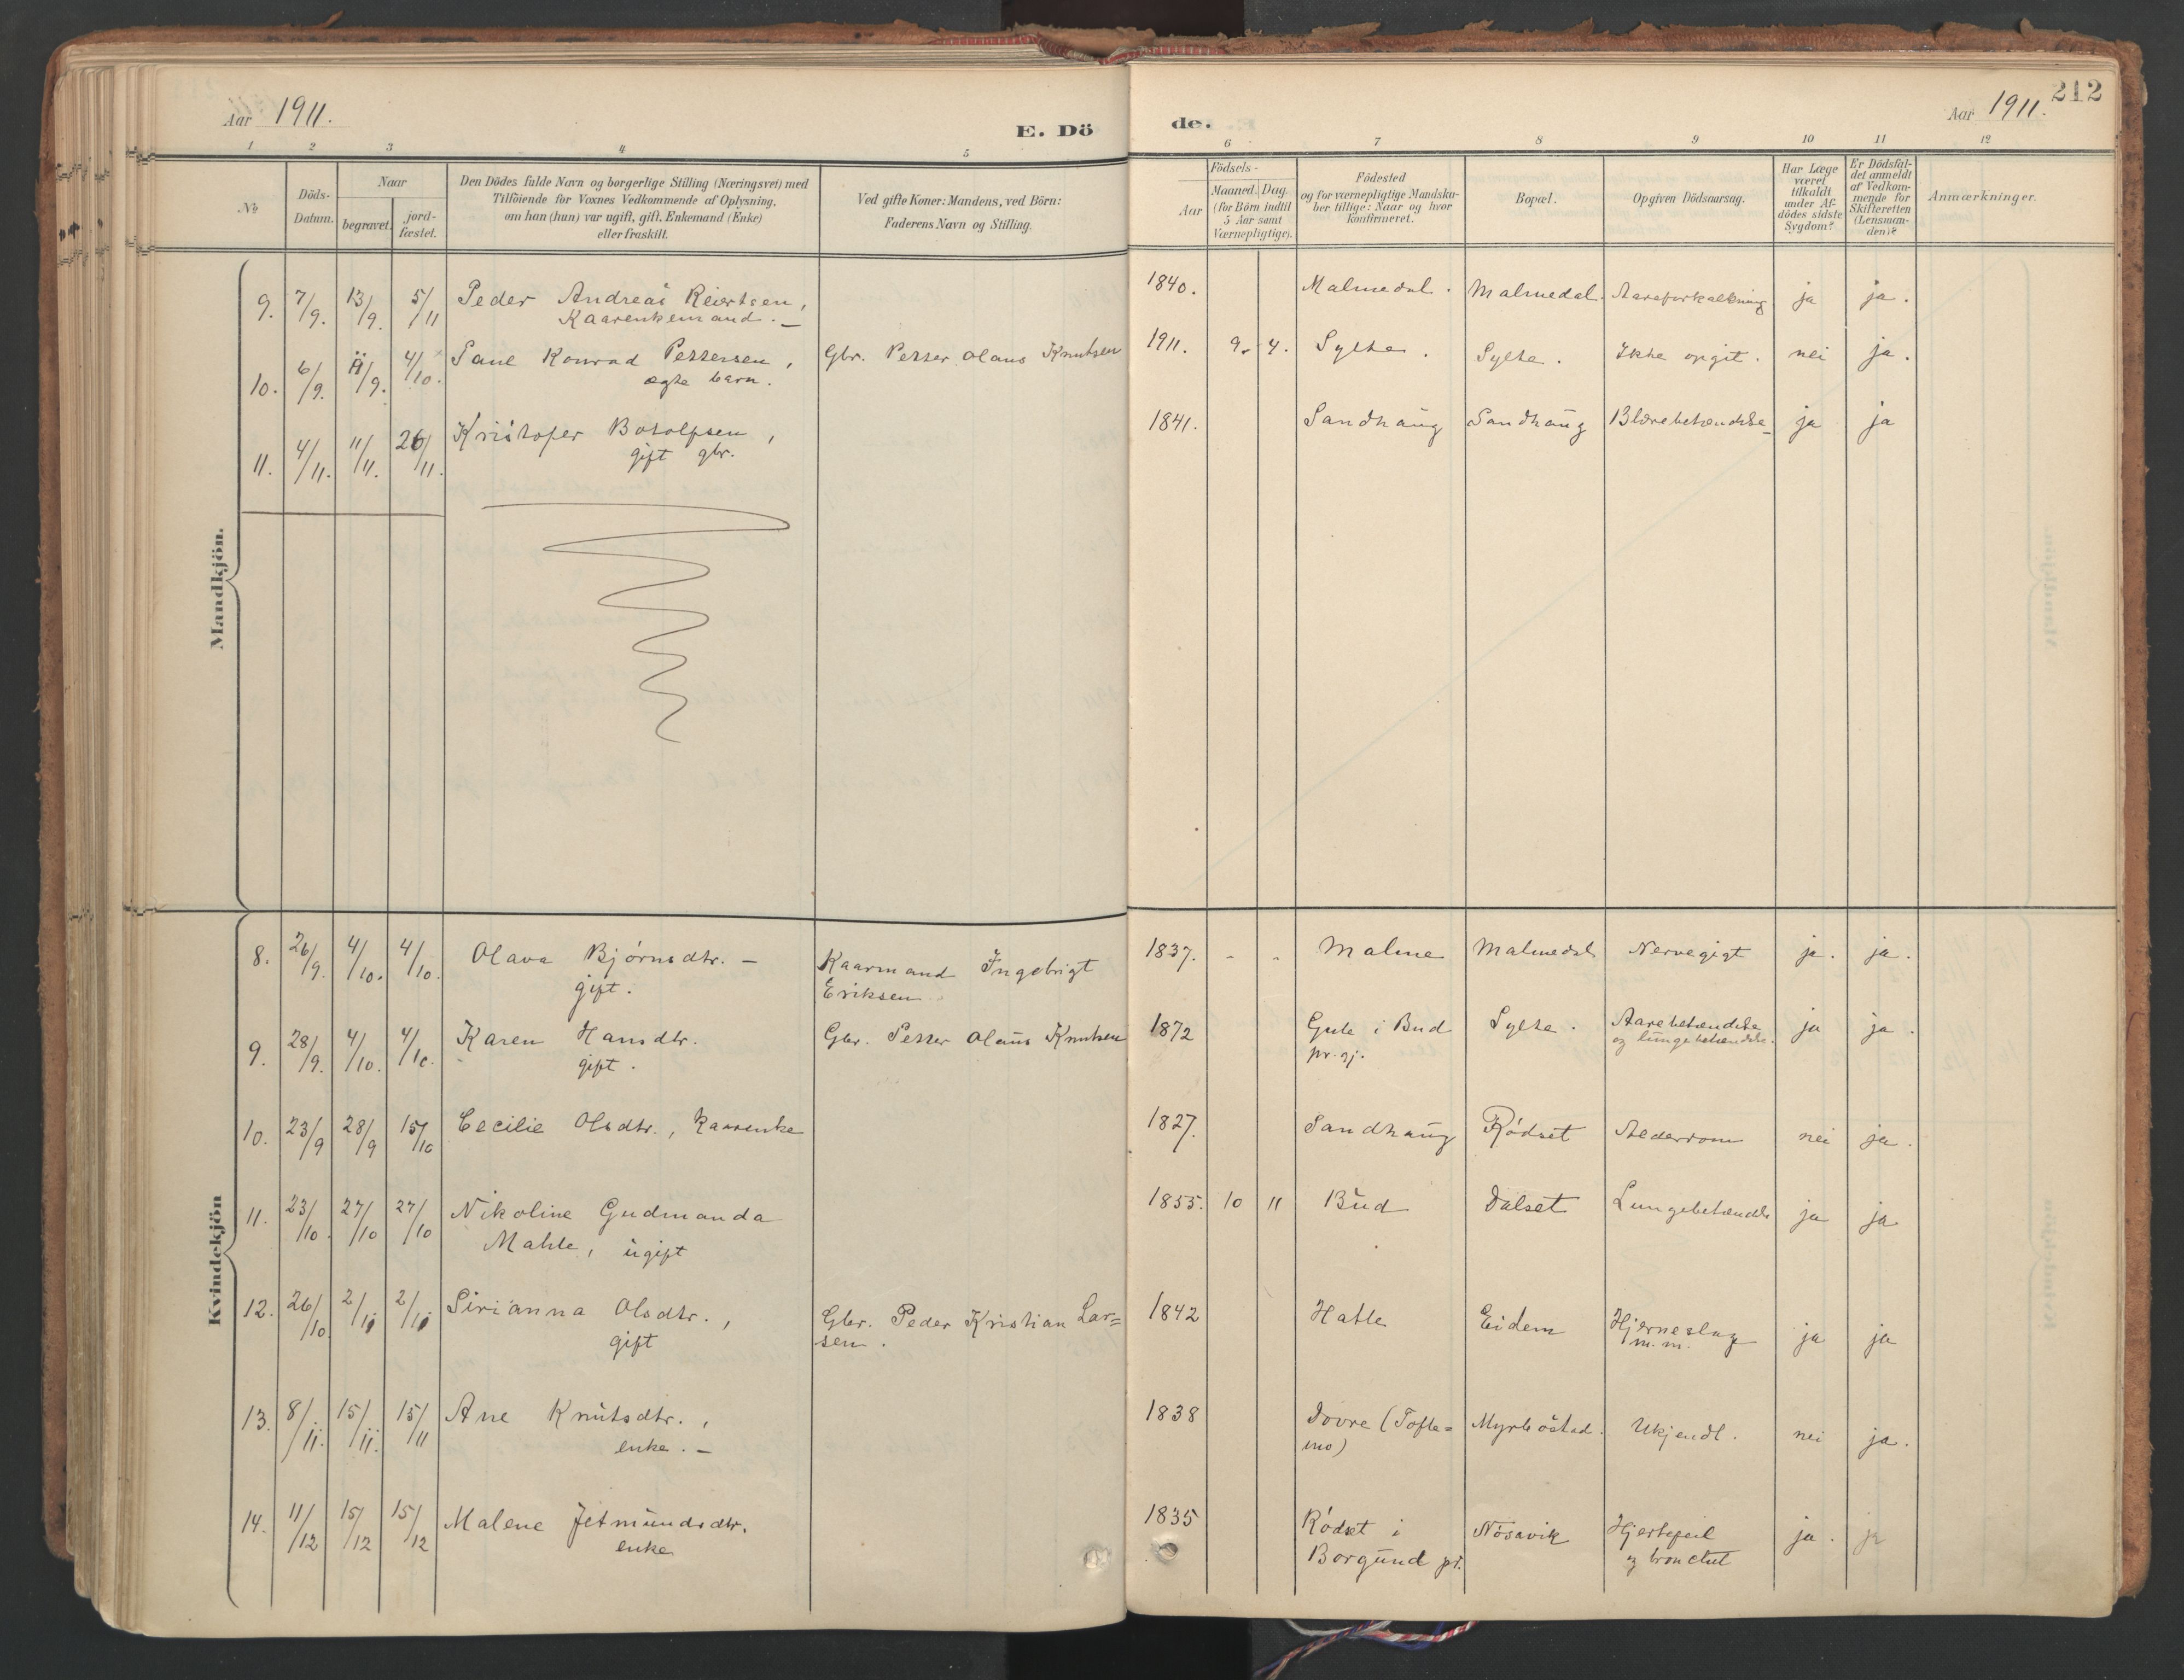 Aar 1911.
E. Dö
de.
Aar 1911.
212
1 2 3 4 5 6 7 8 9 10 11 12
No
Döds-
Datum.
Naar
begravet.
jord-
fæstet.
Den Dödes fulde Navn og borgerlige Stilling (Næringsvei) med
Tilföiende for Voxnes Vedkommende af Oplysning,
om han (hun) var ugift, gift, Enkemand (Enke)
eller fraskilt.
Ved gifte Koner: Mandens, ved Börn:
Faderens Navn og Stilling.
Födsels-
Aar
Maaned. Dag.
(for Börn indtil
5 Aar samt
Værnepligtige).
Födested
og for værnepligtige Mandska-
ber tillige: Naar og hvor
konfirmeret.
Bopæl.
Opgiven Dödsaarsag.
Har Læge
været
tilkaldt
under Af-
dödes sidste
Sygdom?
Er Dödsfal-
det anmeldt
af Vedkom-
mende for
Skifteretten
(Lensman-
den)?
Anmærkninger.
Mandkjön.
9. 7/9. 13/9. 5/11 Peder Andreas Reiertsen, 1840. Malmedal. Malmedal. Aareforkalkning ja ja.
Kaarenkemand. —
10. 6/9. /9. 4/10. Paul Konrad Pettersen, Gbr. Petter Olaus Knutsen 1911. 9. 4. Sylte. Sylte. Ikke opgit. nei ja.
ægte barn.
11. 4/11. 11/11. 26/11. Kristofer Botolfsen, 1841. Sandhaug Sandhaug Blærebetændelse ja ja
gift gbr.
Kvindekjön
8. 26/9. 4/10. 4/10. Olava Bjørnsdtr. — Kaarmand Ingebrigt 1837. - - Malme Malmedal Nervegigt ja. ja.
gift. Eriksen
9. 28/9. 4/10. 4/10. Karen Hansdtr. Gbr. Petter Olaus Knutsen 1872 Gule i Bud Sylte. Aarebetændelse ja ja.
gift. pr. gj. og lungebetændelse.
10. 23/9 28/9 15/10 Cecilie Olsdtr., kaarenke 1827. Sandhaug Rødset Alederdom nei ja.
11. 23/10. 27/10 27/10 Nikoline Gudmanda 1855. 10 11 Bud Dalset Lungebetændelse ja ja
Mahle, ugift
12. 26/10. 2/11 2/11 Sirianna Olsdtr., Gbr. Peder Kristian Lar= 1842 Hatle Eidem Hjerneslag ja ja
gift sen. m.m.
13. 8/11. 15/11. 15/11 Ane Knutsdtr., 1838 Dovre (Tofte= Myrbøstad. Ukjendt. nei ja.
enke. — mo)
14. 11/12 15/12 15/12 Malene Jetmundsdtr. 1835 Rødset i Nøsavik Hjertefeil ja. ja
enke Borgund pr. og